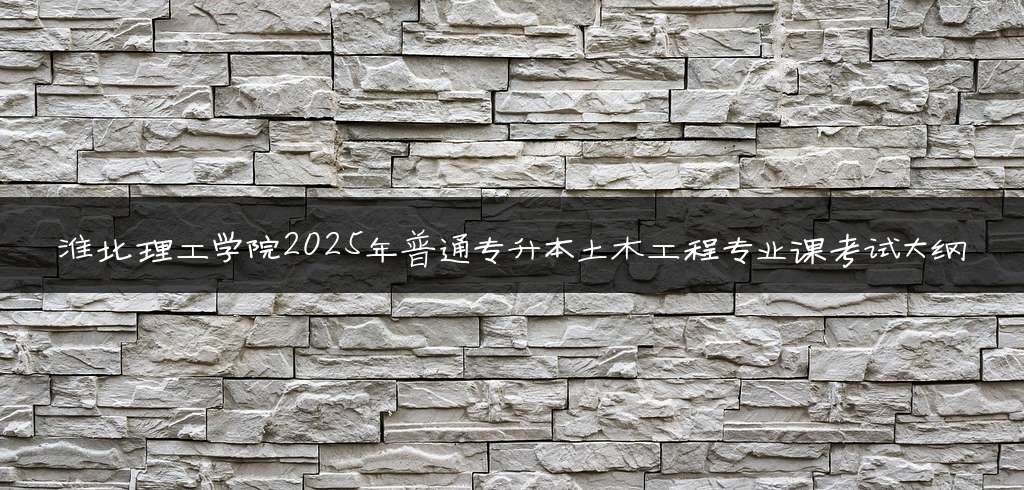 淮北理工学院2025年普通专升本土木工程专业课考试大纲